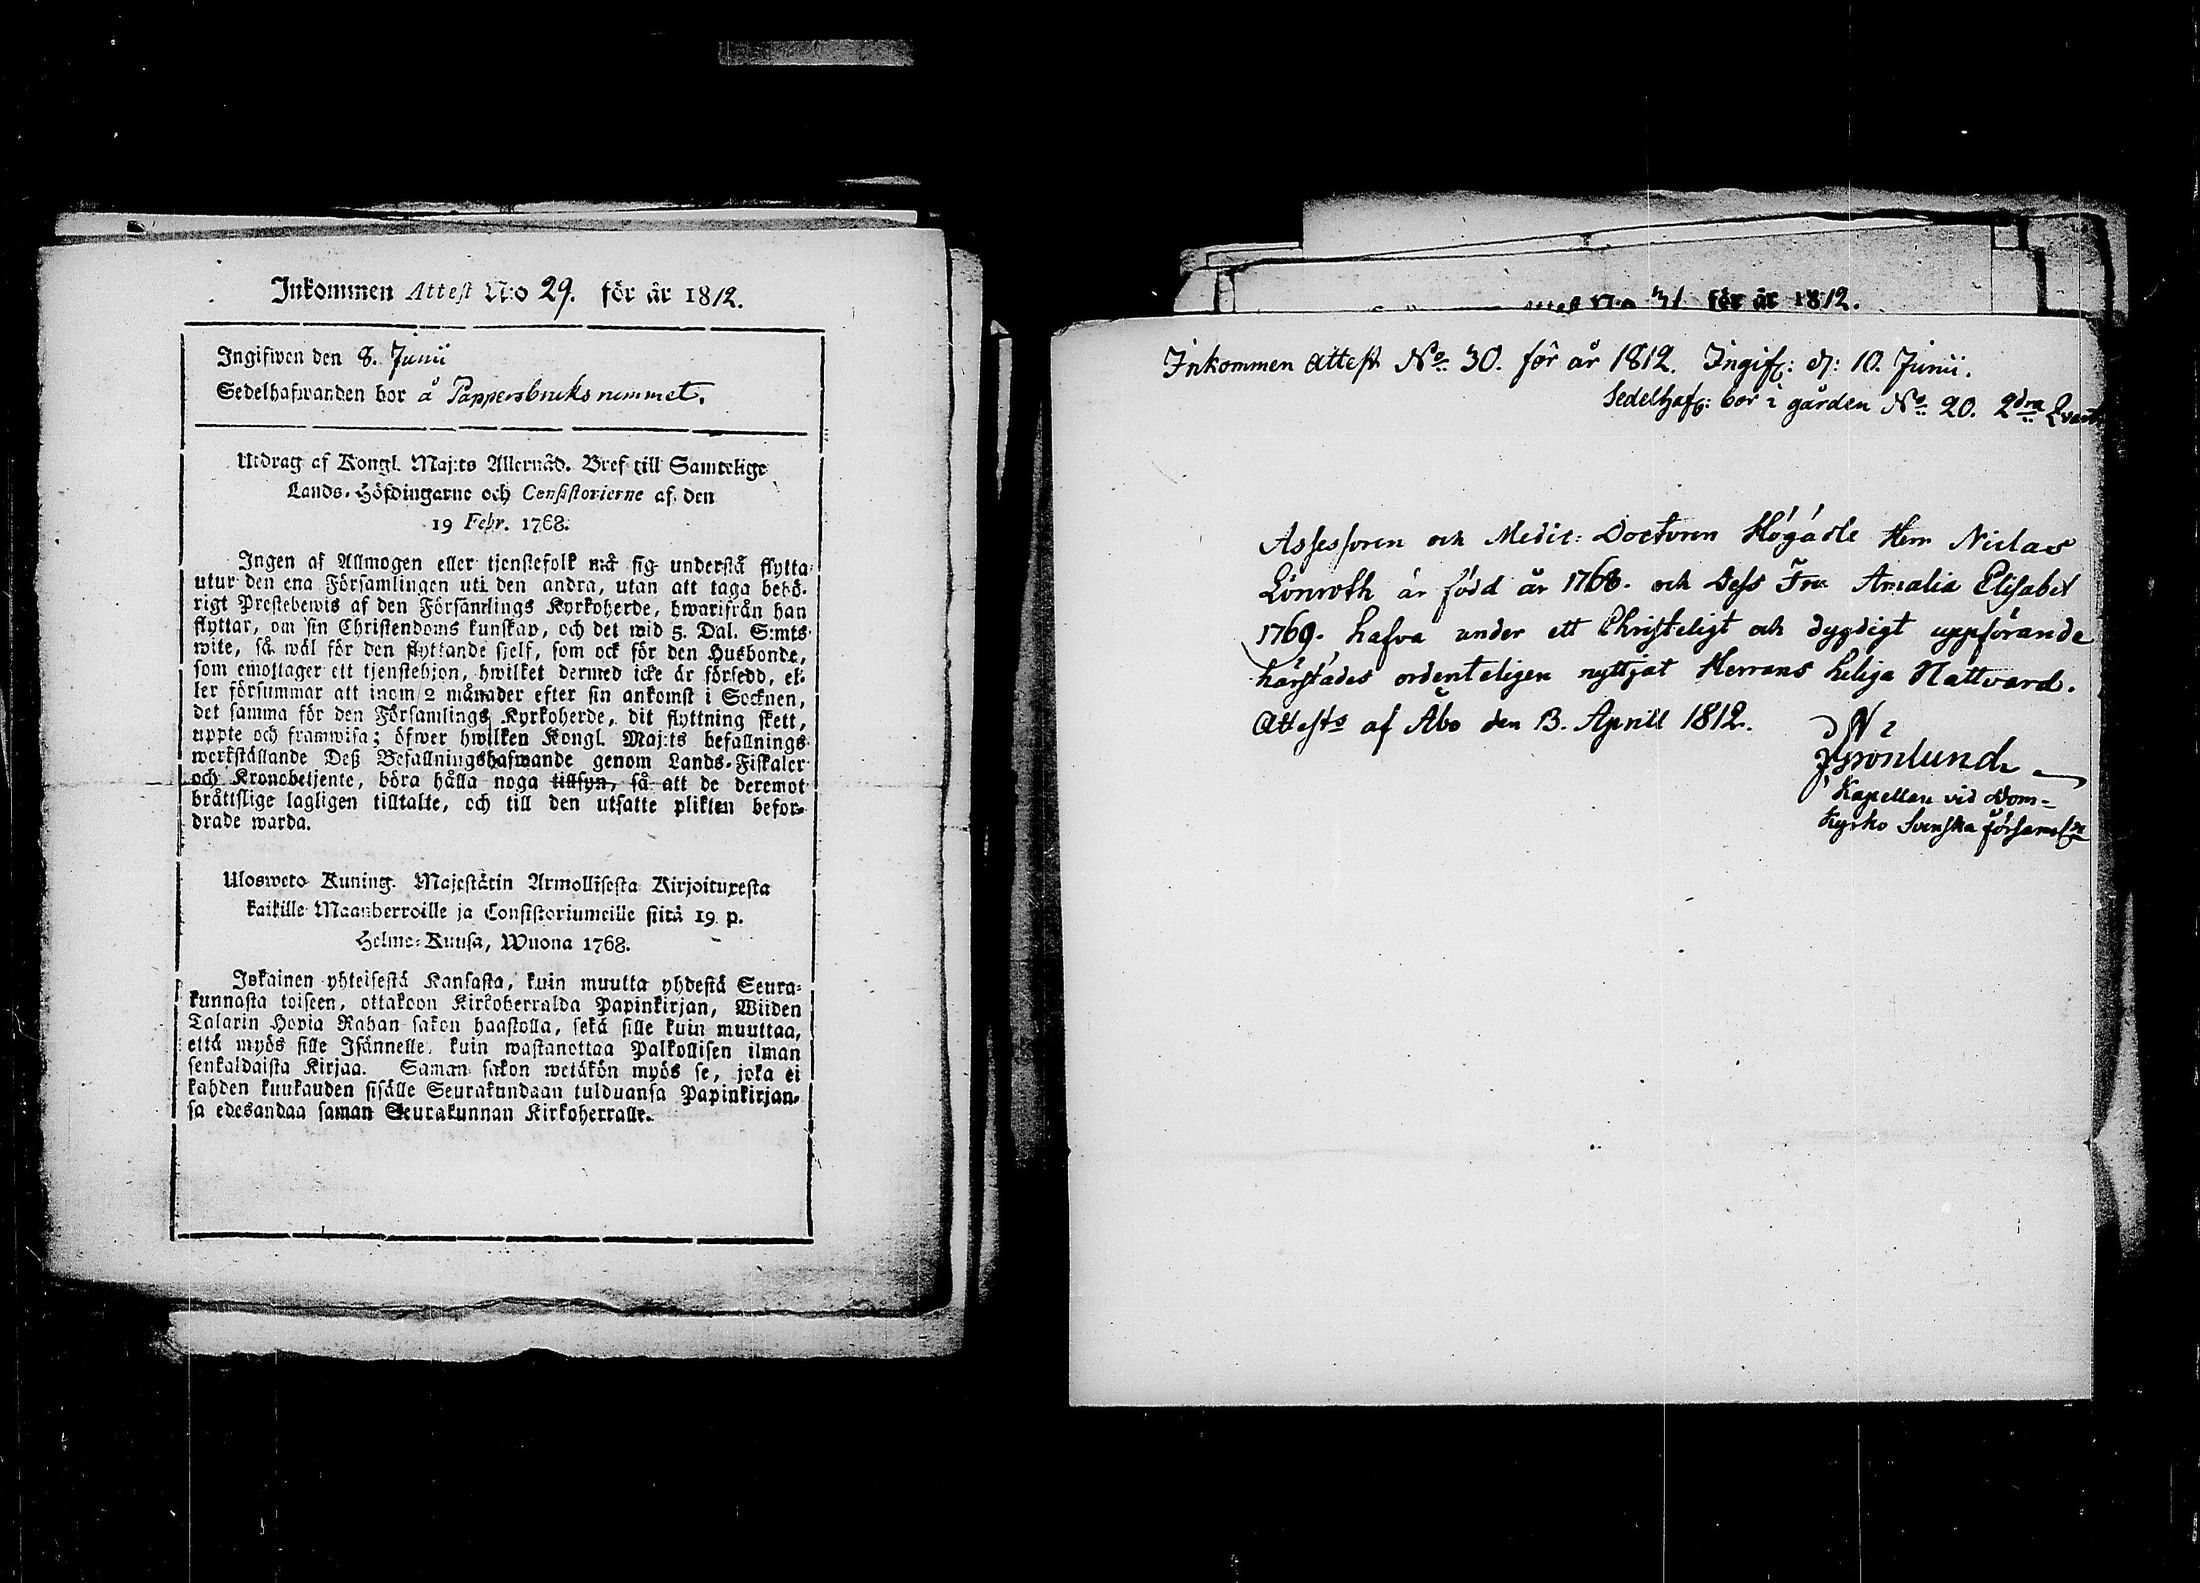 Inkommen Attest N:o 29. för år 1812.
Ingifwen den 8. Junii
Sedelhafwanden bor å Pappersbruks rummet.
Utdrag af Kongl. Maj:ts Allernåd. Bref till Samtelige
Lands-Höfdingarne och Consistorierne af den
19 Febr. 1768.
Ingen af Allmogen eller tjenstefolk må sig understå flytta
utur den ena Församlingen uti den andra, utan att taga behö-
rigt Prestebewis af den Församlings Kyrkoherde, hwarifrån han
flyttar, om sin Christendoms kunskap, och det wid 5. Dal. S:mts
wite, så wäl för den flyttande sjelf, som ock för den Husbonde,
som emottager ett tjenstehjon, hwilket dermed icke är försedd, el-
ler försummar att inom 2 månader efter sin ankomst i Socknen,
det samma för den Församlings Kyrkoherde, dit flyttning skett,
uppte och framwisa; öfwer hwilken Kongl. Maj:ts befallnings
werkställande Deß Befallningshafwande genom Lands-Fiskaler
och Kronobetjente, böra hålla noga tillsyn, så att de deremot
bråttslige lagligen tilltalte, och till den utsatte plikten befor-
drade warda.
Ulosweto Kuning. Majestätin Armollisesta Kirjoituxesta
kaikille Maanherroille ja Consistoriumeille siitä 19 p.
Helme-Kuusa, Wuona 1768.
Jokainen yhteisestä Kansasta, kuin muutta yhdestä Seura-
kunnasta toiseen, ottakoon Kirkoherralda Papinkirjan, Wiiden
Talarin Hopia Rahan sakon haastolla, sekä sille kuin muuttaa,
että myös sille Isännelle, kuin wastanottaa Palkollisen ilman
senkaldaista Kirjaa. Saman sakon wetäkön myös se, joka ei
kahden kuukauden sisälle Seurakundaan tulduansa Papinkirjan-
sa edesandaa saman Seurakunnan Kirkoherralle.
N:o 31 för år 1812.
Inkommen attest No. 30. för år 1812. Ingif: d: 10. Junii.
Sedelhaf: bor i gården No. 20. 2dra Qvart
Assessoren och Medic: Doctoren Högädle Herr Niclas
Lönroth är född år 1768. och dess Fru Amalia Elisabet
1769. hafva under ett Christeligt och dygdigt uppförande
härstädes ordenteligen nyttjat Herrans heliga Nattvard.
Attests af Åbo den 13. Aprill 1812.
Grönlund
Kapellan vid Dom-
kyrko Svenska församl:n